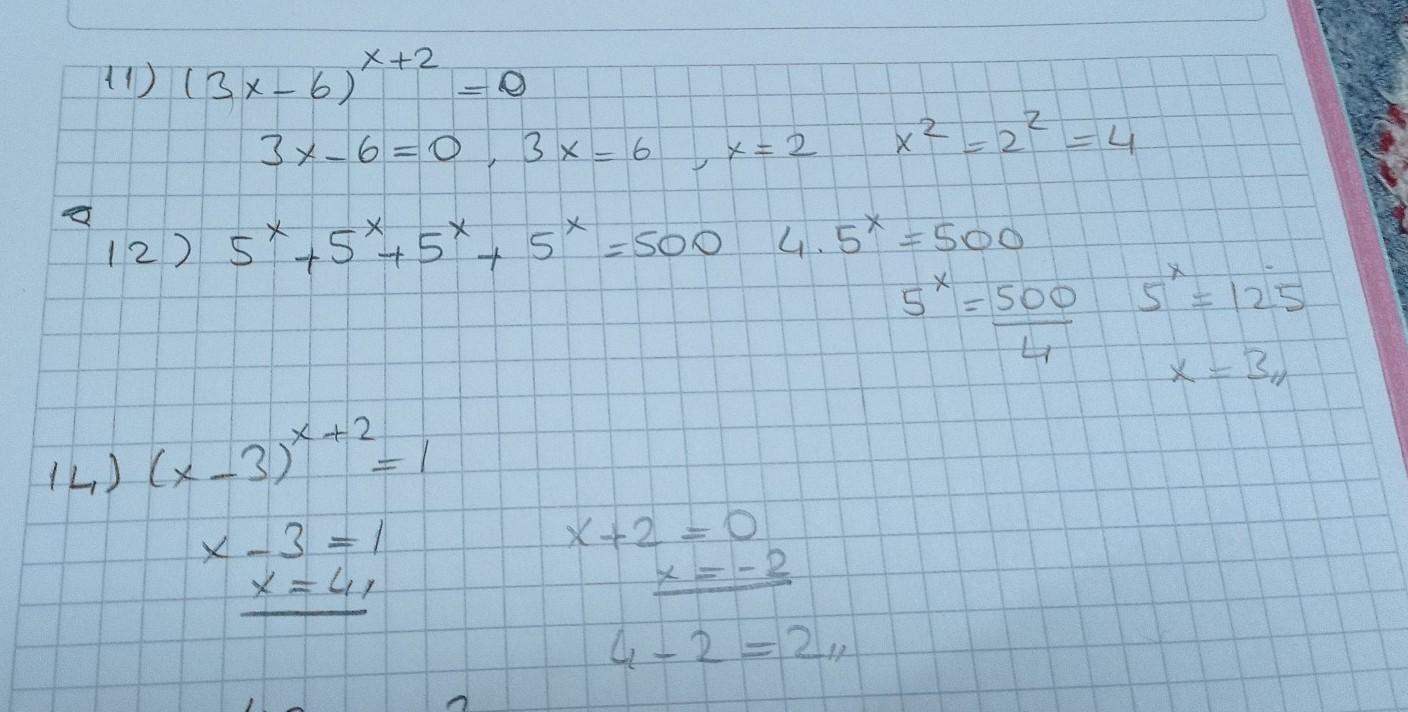 11) (3x-6)^(x+2) = 0
3x-6=0, 3x=6, x=2 x²=2²=4
12) 5^x+5^x+5^x+5^x=500 4.5^x=500
5^x=500/4 5^x=125
x=3,,
14) (x-3)^(x+2)=1
x-3=1 x+2=0
x=4, x=-2
4-2=2,,